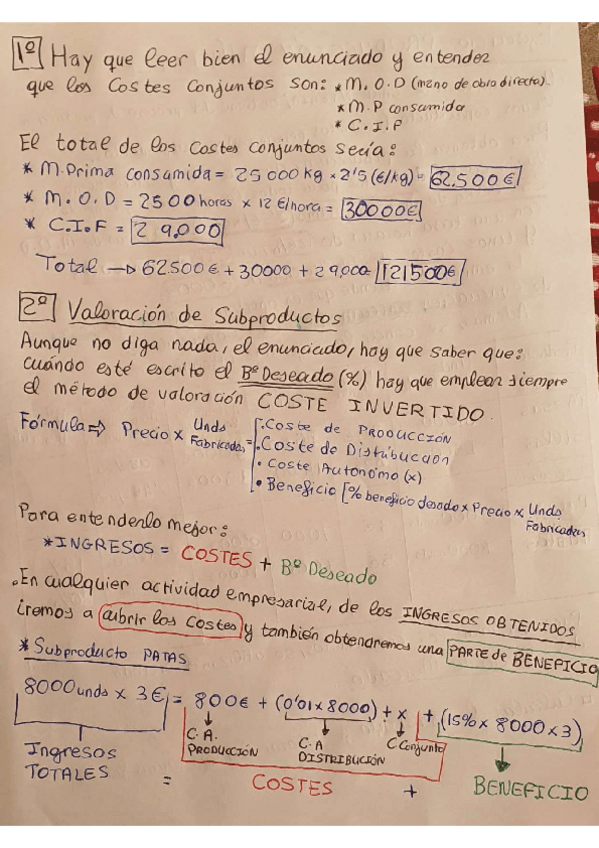 1º Hay que leer bien el enunciado y entender
que los Costes Conjuntos son: * M.O.D (mano de obra directa).
* M.P consumida
* C.I.F
El total de los Costes conjuntos sería:
* M.Prima consumida = 25000 kg × 2'5 (€/kg) = 62.500€
* M.O.D = 2500 horas × 12 €/hora = 30000€
* C.I.F = 29.000
Total → 62.500€ + 30000 + 29.000 = 121500€
2º Valoración de Subproductos
Aunque no diga nada, el enunciado, hay que saber que:
cuándo esté escrito el Bº Deseado (%) hay que emplear siempre
el método de valoración COSTE INVERTIDO.
Fórmula ⇒ Precio × Unds Fabricadas =
• Coste de PRODUCCIÓN
• Coste de Distribucción
• Coste Autónomo (x)
• Beneficio [% beneficio desado × Precio × Unds Fabricadas
Para entenderlo mejor:
* INGRESOS = COSTES + Bº Deseado
• En cualquier actividad empresarial, de los INGRESOS OBTENIDOS
iremos a cubrir los costes y también obtendremos una PARTE de BENEFICIO
* Subproducto PATAS
8000 unds × 3€ = 800€ + (0'01 × 8000) + x + (15% × 8000 × 3)
C.A. PRODUCCIÓN
C.A DISTRIBUCIÓN
C Conjunto
Ingresos TOTALES = COSTES + BENEFICIO